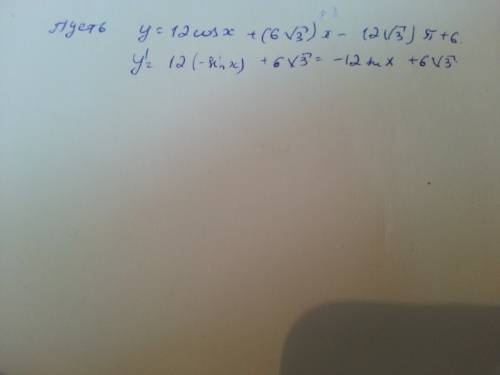 Пусть y = 12 cos x + (6√3) x - (2√3) π + 6.
y' = 12 (-sin x) + 6√3 = -12 sin x + 6√3